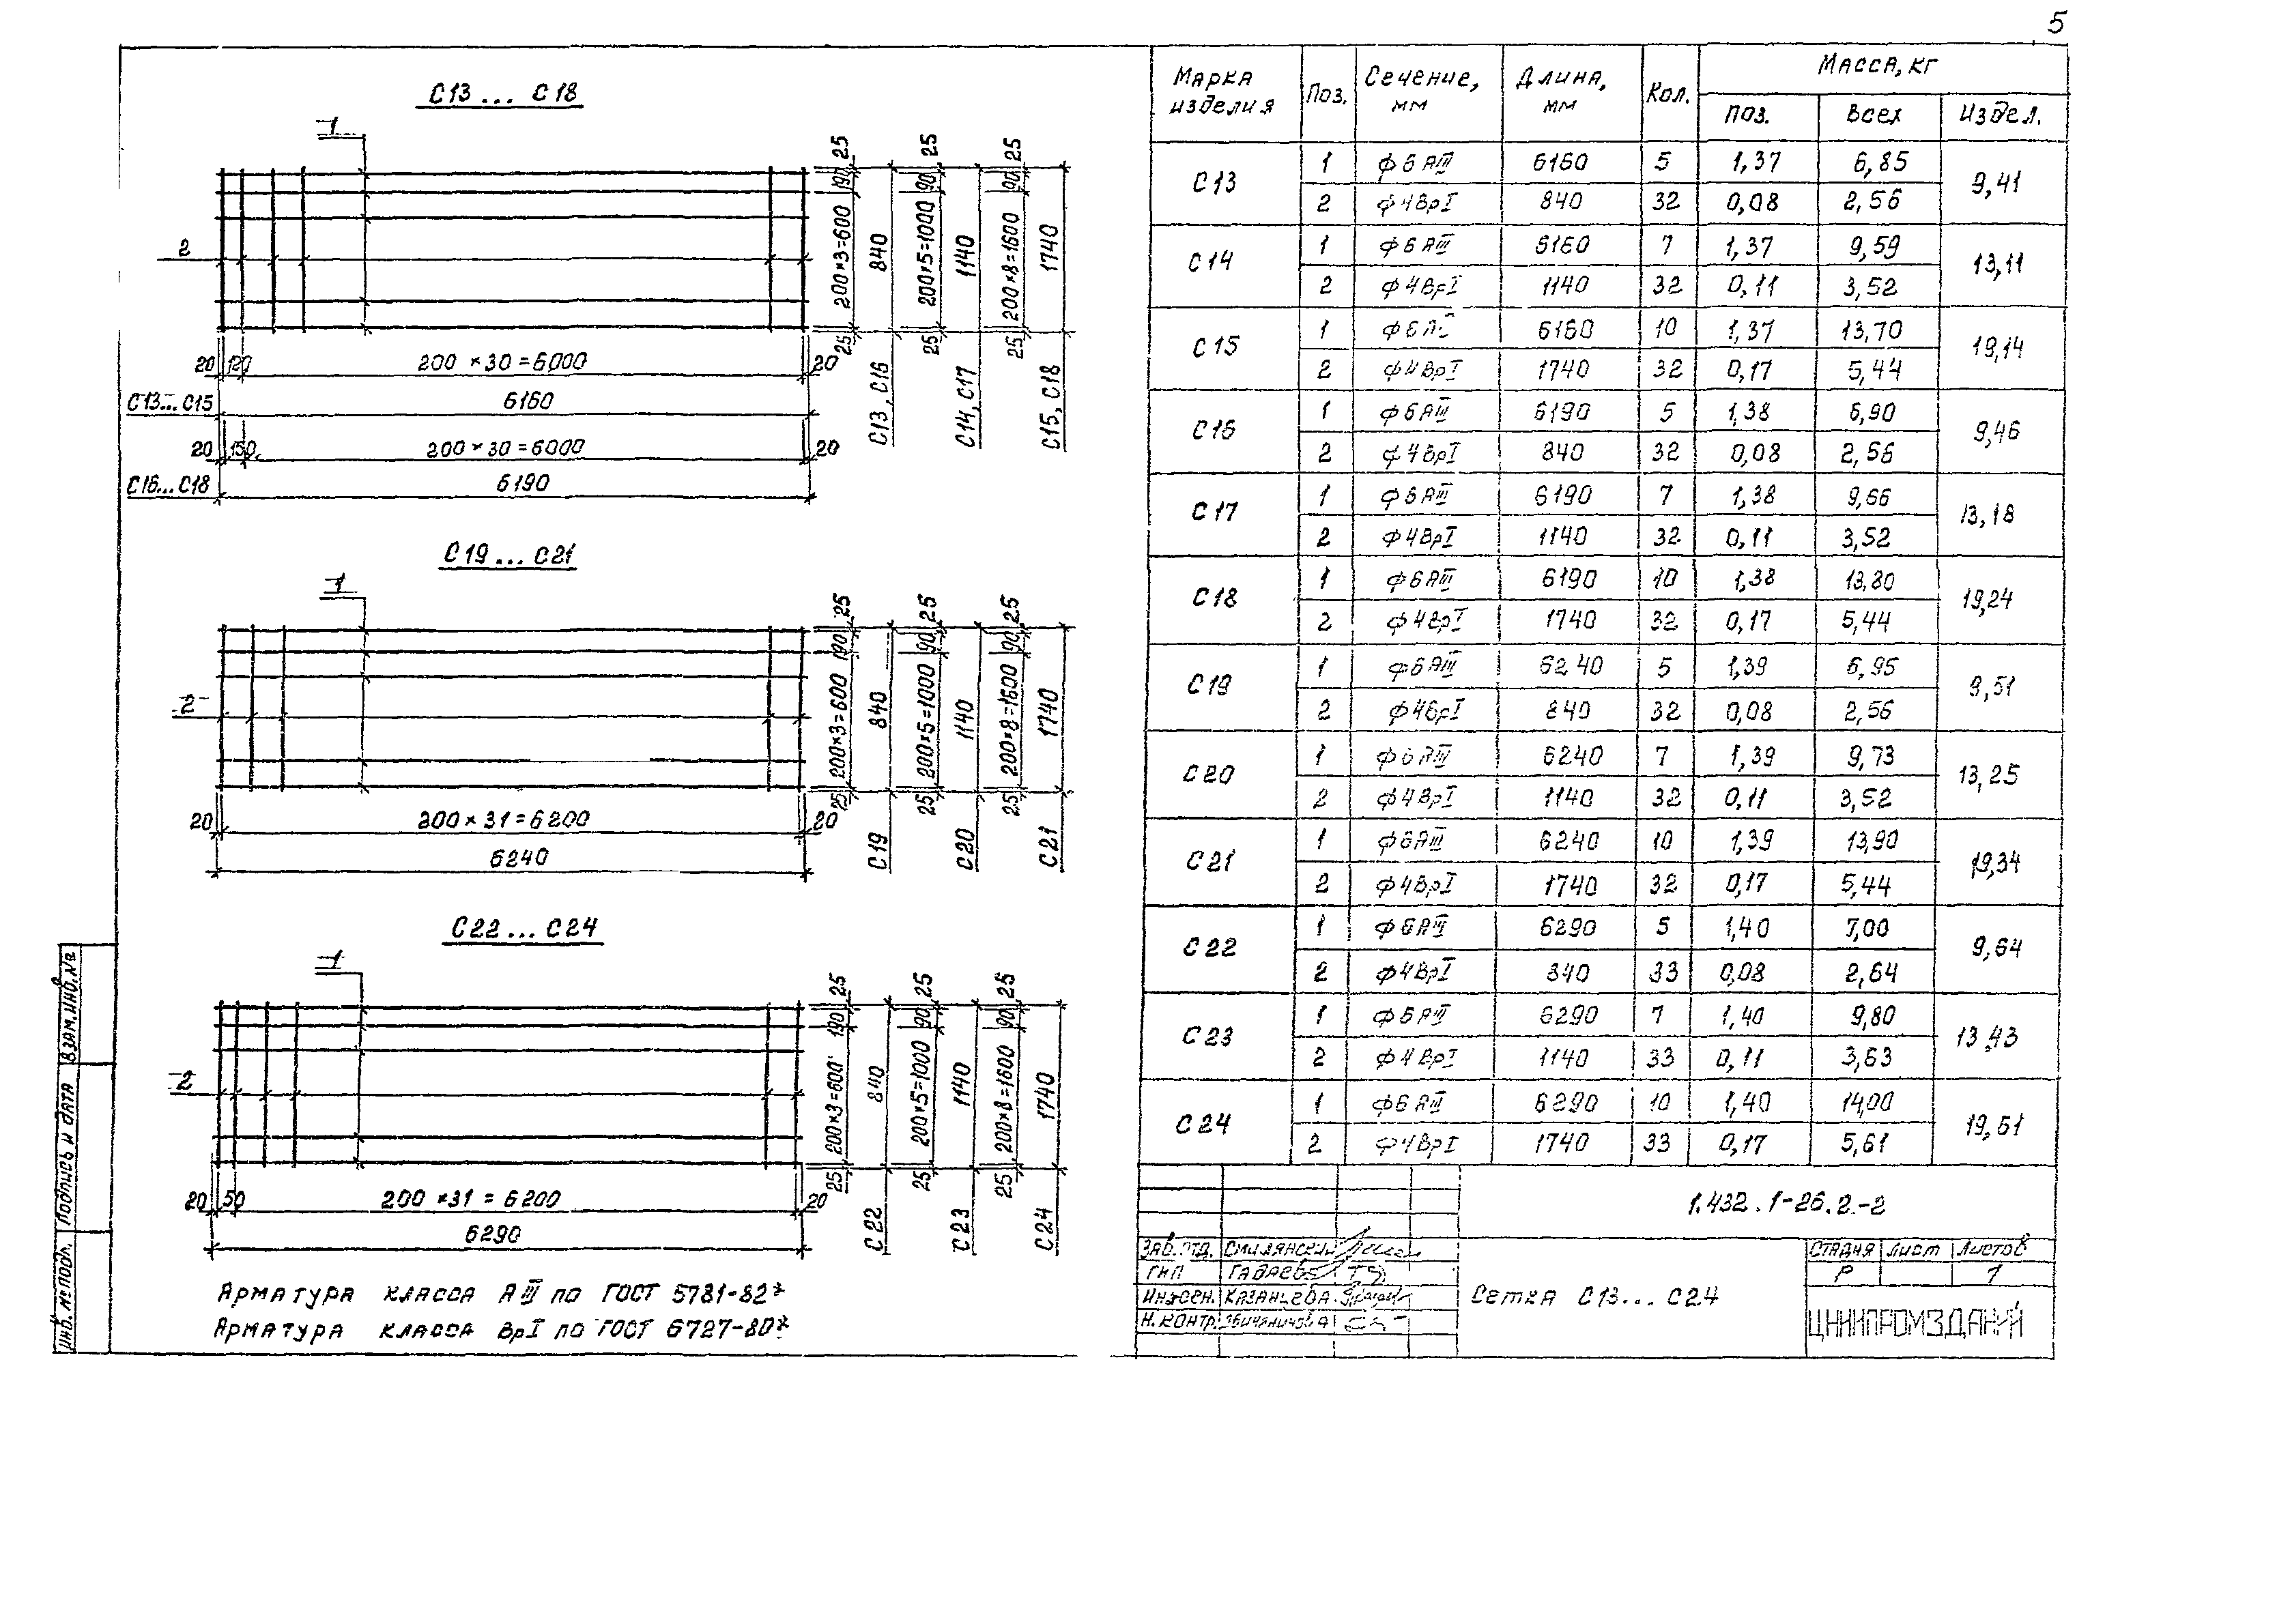 5
С13... С18
1
2
25 190 200×3=600 25 840 С13, С16
25 90 200×5=1000 25 1140 С14, С17
25 90 200×8=1600 25 1740 С15, С18
20 120 200×30=6000 20
С13...С15 6160
20 150 200×30=6000 20
С16...С18 6190
С19... С21
1
2
25 190 200×3=600 25 840 С19
25 90 200×5=1000 25 1140 С20
25 90 200×8=1600 25 1740 С21
20 200×31=6200 20
6240
С22... С24
1
2
25 190 200×3=600 25 840 С22
25 90 200×5=1000 25 1140 С23
25 90 200×8=1600 25 1740 С24
20 50 200×31=6200 20
6290
Арматура класса АIII по ГОСТ 5781-82*
Арматура класса ВрI по ГОСТ 6727-80*
Марка изделия Поз. Сечение, мм Длина, мм Кол. Масса, кг
поз. всех Издел.
С13 1 ф6АIII 6160 5 1,37 6,85 9,41
2 ф4ВрI 840 32 0,08 2,56
С14 1 ф6АIII 6160 7 1,37 9,59 13,11
2 ф4ВрI 1140 32 0,11 3,52
С15 1 ф6АIII 6160 10 1,37 13,70 19,14
2 ф4ВрI 1740 32 0,17 5,44
С16 1 ф6АIII 6190 5 1,38 6,90 9,46
2 ф4ВрI 840 32 0,08 2,56
С17 1 ф6АIII 6190 7 1,38 9,66 13,18
2 ф4ВрI 1140 32 0,11 3,52
С18 1 ф6АIII 6190 10 1,38 13,80 19,24
2 ф4ВрI 1740 32 0,17 5,44
С19 1 ф6АIII 6240 5 1,39 6,95 9,51
2 ф4ВрI 840 32 0,08 2,56
С20 1 ф6АIII 6240 7 1,39 9,73 13,25
2 ф4ВрI 1140 32 0,11 3,52
С21 1 ф6АIII 6240 10 1,39 13,90 19,34
2 ф4ВрI 1740 32 0,17 5,44
С22 1 ф6АIII 6290 5 1,40 7,00 9,64
2 ф4ВрI 840 33 0,08 2,64
С23 1 ф6АIII 6290 7 1,40 9,80 13,43
2 ф4ВрI 1140 33 0,11 3,63
С24 1 ф6АIII 6290 10 1,40 14,00 19,61
2 ф4ВрI 1740 33 0,17 5,61
1.432.1-26.2.-2
Зав. отд. Смилянский
ГИП
Инжен. Казанцева
Н. контр.
Сетка С13... С24
Стадия Лист Листов
Р 1
ЦНИИПРОМЗДАНИЙ
Взам. инв. №
Подпись и дата
Инв. № подл.